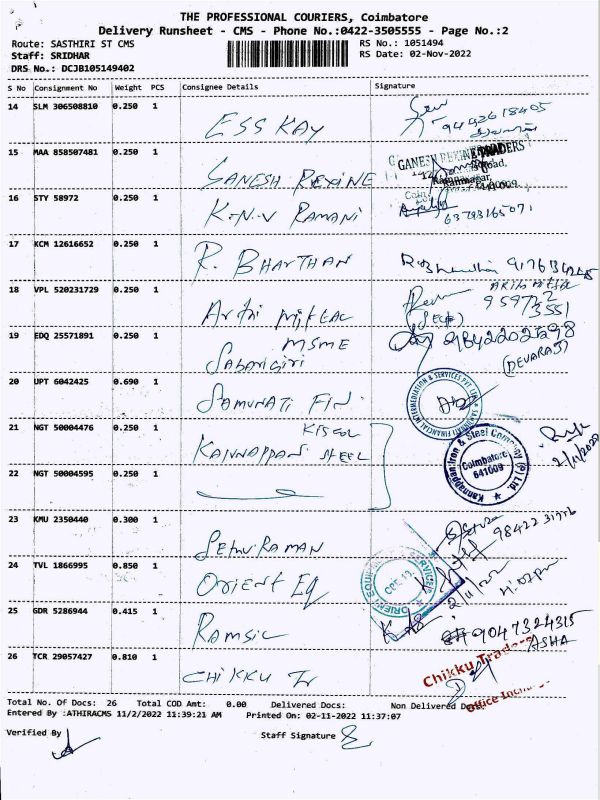 THE PROFESSIONAL COURIERS, Coimbatore
Delivery Runsheet - CMS - Phone No.:0422-3505555 - Page No.:2
Route: SASTHIRI ST CMS
RS No.: 1051494
Staff: SRIDHAR
RS Date: 02-Nov-2022
DRS No.: DCJB105149402
S No Consignment No Weight PCS Consignee Details Signature
14 SLM 306508810 0.250 1 ESS KAY
9442618405
15 MAA 858507481 0.250 1 GANESH REXINE
GANESH REXINE TRADERS
Ramnagar,
16 STY 58972 0.250 1 K.N.V RAMANI
6379316507
17 KCM 12616652 0.250 1 R. BHARTHAN
18 VPL 520231729 0.250 1 Arthi
959772
3551
19 EDQ 25571891 0.250 1 MSME
Sabarigiri
9842202598
(DEVARAJ)
20 UPT 6042425 0.690 1 SAMUNATI FIN
21 NGT 50004476 0.250 1 KISCOL
KANNAPPAN STEEL
Kannappan Iron & Steel Company (P) Ltd.
Coimbatore
641009
2/11/2022
22 NGT 50004595 0.250 1
23 KMU 2350440 0.300 1 SETHURAMAN
24 TVL 1866995 0.850 1 ORIENT EQ
2/11/22
25 GDR 5286944 0.415 1 RAMSIL
9047324315
ASHA
26 TCR 29057427 0.810 1 CHIKKU Tr
Chikku Traders
Office Incharge
Total No. Of Docs: 26 Total COD Amt: 0.00 Delivered Docs: Non Delivered Docs:
Entered By :ATHIRACMS 11/2/2022 11:39:21 AM Printed On: 02-11-2022 11:37:07
Verified By
Staff Signature